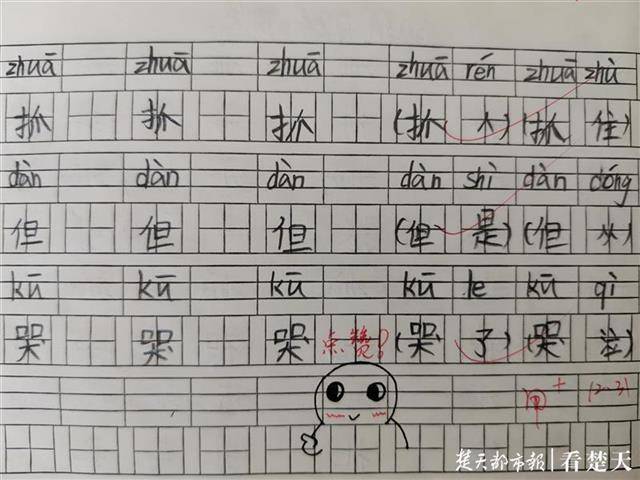 zhuā zhuā zhuā zhuā rén zhuā zhù
抓 抓 抓 (抓 人) (抓 住)
dàn dàn dàn dàn shì dàn dóng
但 但 但 (但 是) (但 )
kū kū kū kū le kū qì
哭 哭 哭 点赞? (哭 了) (哭 泣)
甲+ 12-31
楚天都市报 | 看楚天